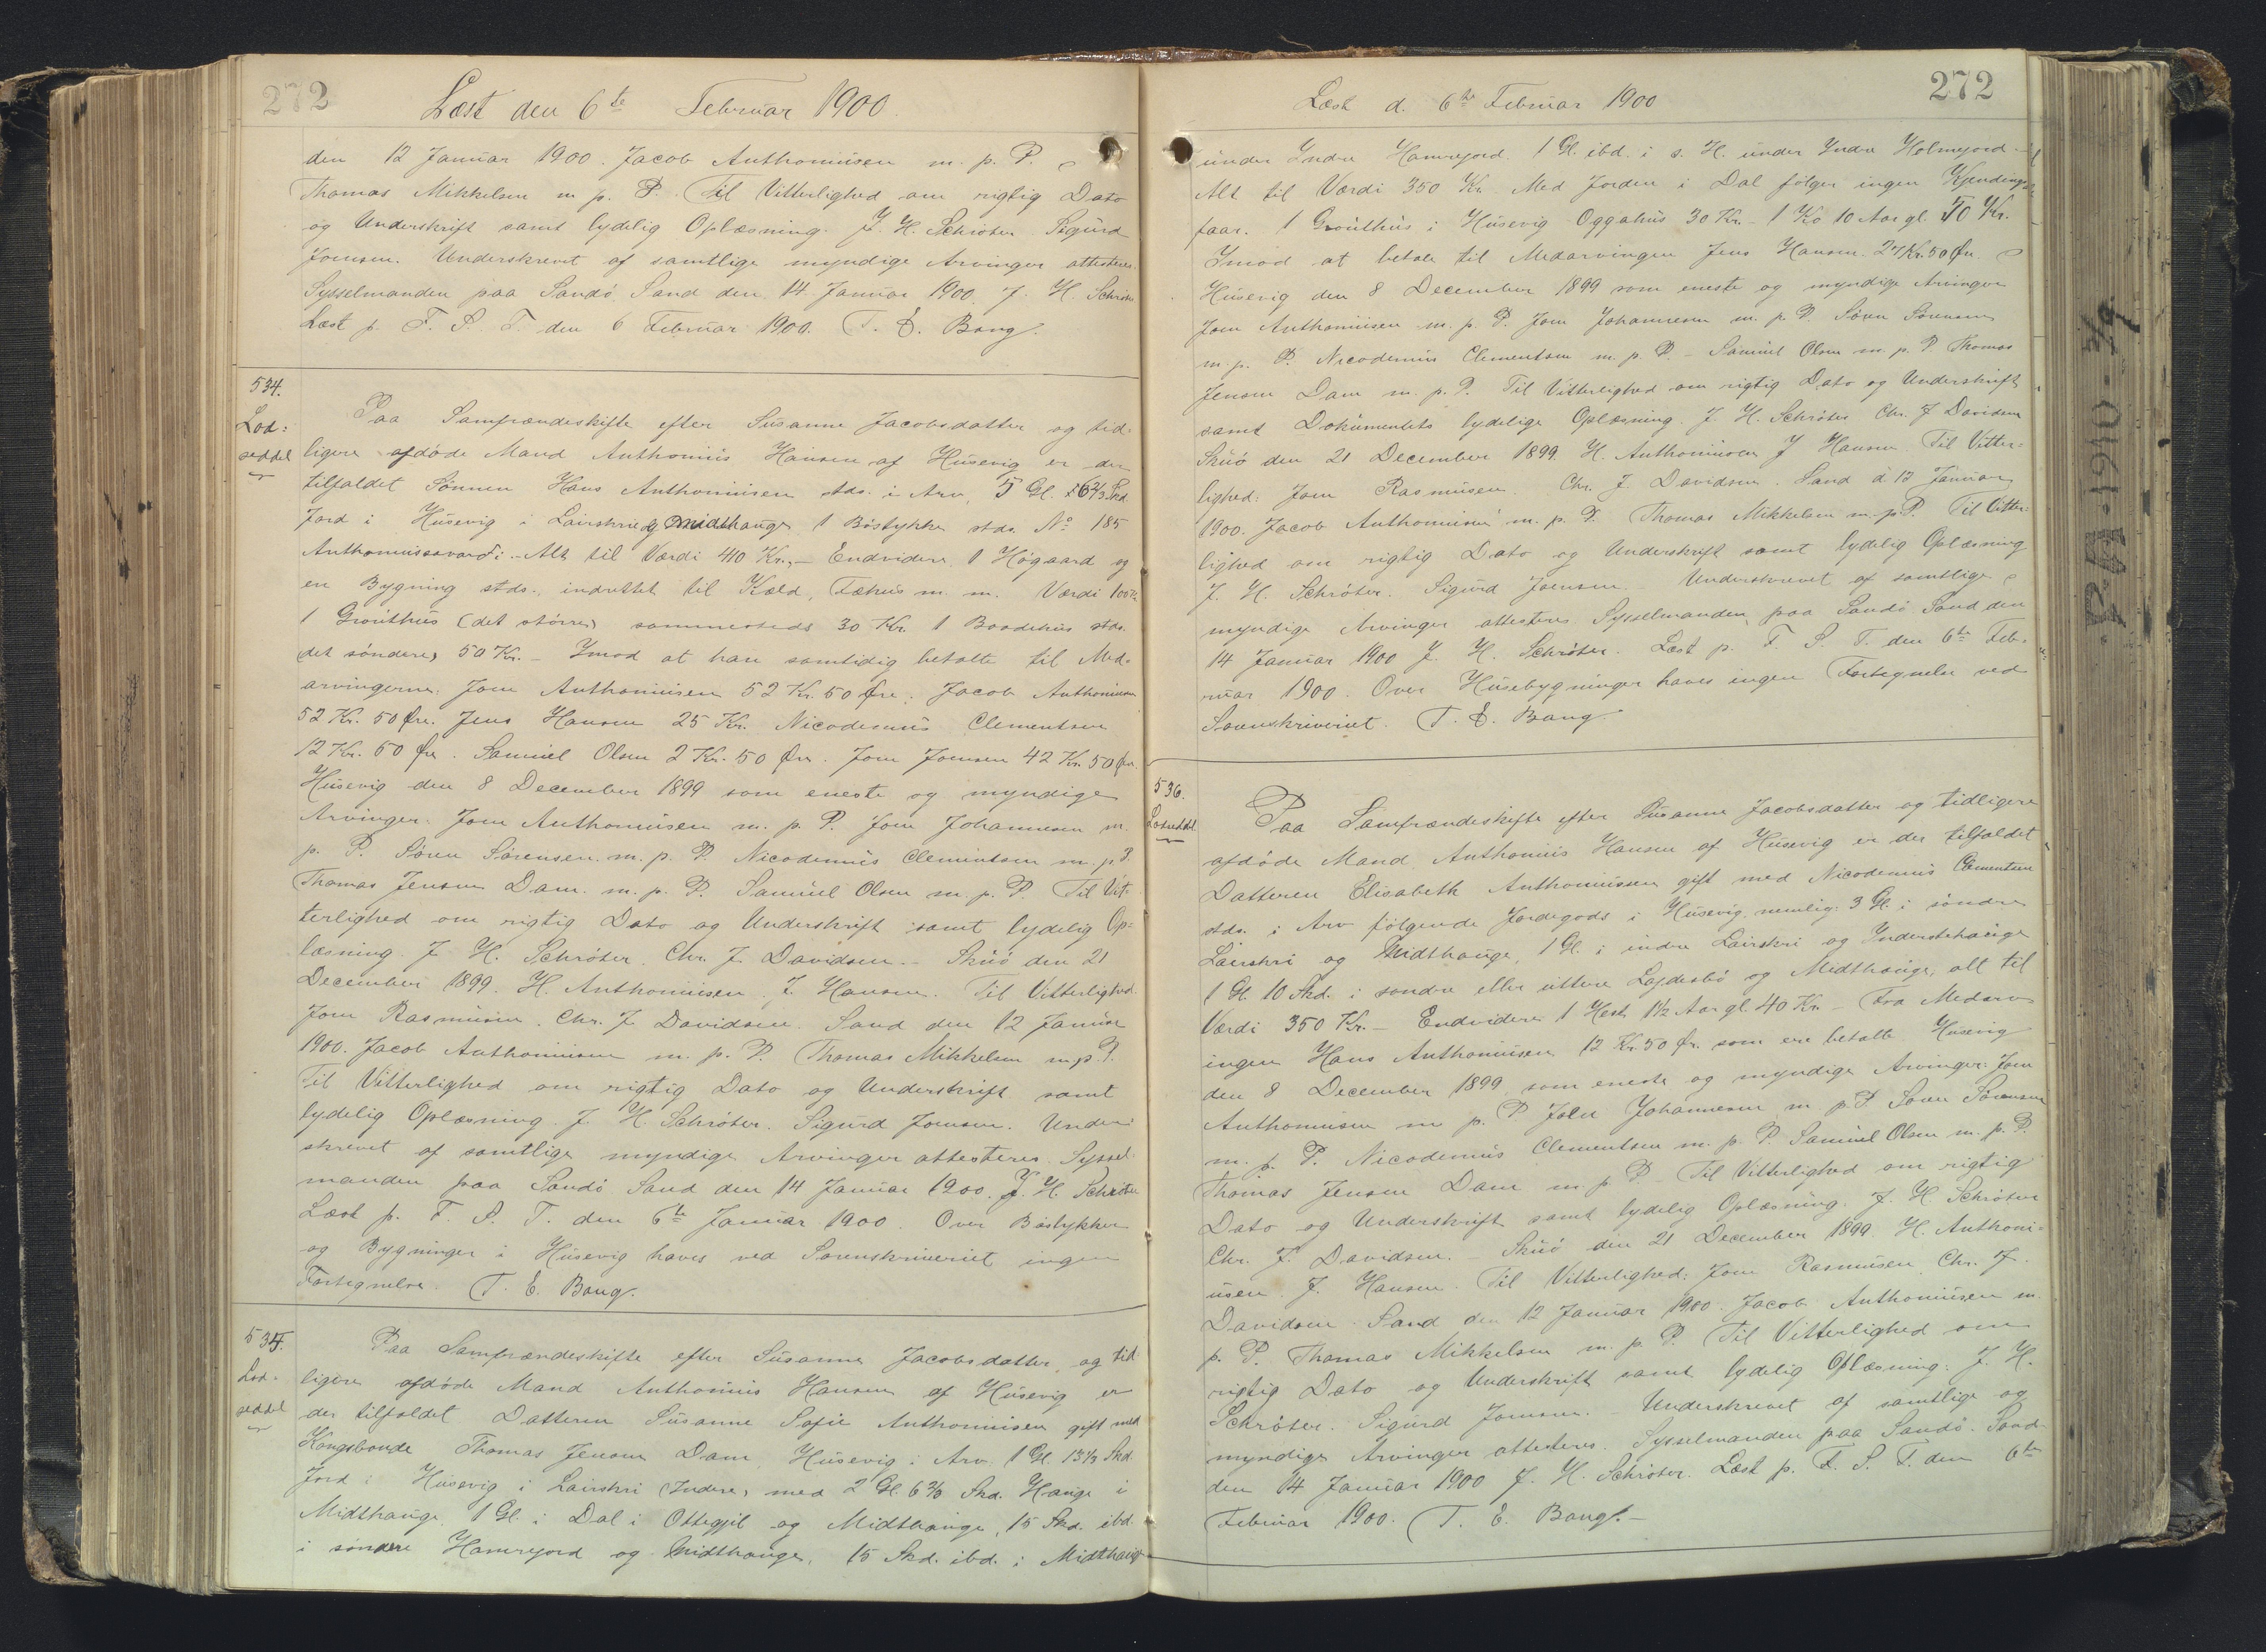 272
Læst den 6te Februar 1900.
den 12 Januar 1900. Jacob Anthoniusen m. p. P.
Thomas Mikkelsen m. p. P. Til Vitterlighed om rigtig Dato
og Underskrift samt lydelig Oplæsning. J. H. Schröter Sigurd
Joensen. Underskrevet af samtlige myndige Arvinger attesteres.
Sysselmanden paa Sandö. Sand den 14 Januar 1900. J. H. Schröter
Læst p. F. S. T. den 6 Februar 1900. T. E. Bang.
534.
Lod=
seddel
Paa Samfrændeskifte efter Susanne Jacobsdatter og tid-
ligere afdöde Mand Anthonius Hansen af Husevig er der
tilfaldet Sönnen Hans Anthoniusen stds. i Arv, 5 Gl. 6 2/3 Skd.
Jord i Husevig i Lairskrie og Midthauge 1 Böstykke stds. No 185
Alt til Værdi 410 Kr. — Endvidere 1 Högaard og
en Bygning stds. indrettet til Kæld, Fæhus m. m. Værdi 100 Kr.
1 Grouthus (det större) sammesteds 30 Kr. 1 Baadehus stds.
(det söndere) 50 Kr. — Imod at han samtidig betalte til Med-
arvingerne: Joen Anthoniusen 52 Kr. 50 Øre. Jacob Anthoniusen
52 Kr. 50 Øre. Jens Hansen 25 Kr. Nicodemus Clementsen
12 Kr. 50 Øre. Samuel Olsen 2 Kr. 50 Øre. Joen Joensen 42 Kr. 50 Øre.
Husevig den 8 December 1899 som eneste og myndige
Arvinger. Joen Anthoniusen m. p. P. Joen Johannesen m.
p. P. Sören Sörensen. m. p. P. Nicodemus Clementsen m. p. P.
Thomas Jensen Dam. m. p. P. Samuel Olsen m. p. P. Til Vit-
terlighed om rigtig Dato og Underskrift samt lydelig Op-
læsning. J. H. Schröter. Chr. J. Davidsen. — Skuö den 21
December 1899. H. Anthoniusen. J. Hansen. Til Vitterlighed.
Joen Rasmusen. Chr. J. Davidsen. Sand den 12 Januar
1900. Jacob Anthoniusen m. p. P. Thomas Mikkelsen m. p. P.
Til Vitterlighed om rigtig Dato og Underskrift samt
lydelig Oplæsning. J. H. Schröter. Sigurd Joensen. Under-
skrevet af samtlige myndige Arvinger attesteres. Syssel-
manden paa Sandö Sand den 14 Januar 1900. J. H. Schröter
Læst p. F. S. T. den 6te Januar 1900. Over Böstykker
og Bygninger i Husevig haves ved Sorenskriveriet ingen
Fortegnelse. T. E. Bang.
535.
Lod-
seddel
Paa Samfrændeskifte efter Susanne Jacobsdatter, og tid-
ligere afdöde Mand Anthonius Hansen af Husevig er
der tilfaldet Datteren Susanne Sofie Anthoniusen gift med
Kongsbonde Thomas Jensen Dam Husevig i Arv. 1 Gl. 13 1/3 Skd.
Jord i Husevig i Lairskri (Indere) med 2 Gl. 6 2/3 Skd. Hauge i
Midthauge. 1 Gl. i Dal i Ottegjil og Midthauge, 15 Skd. ibd.
i söndre Hamrejord og Midthauge, 15 Skd. ibd. i Midthauge
272
Læst d. 6te Februar 1900
under Indre Hamrejord. 1 Gl. ibd. i s. H. under Indre Holmejord —
Alt til Værdi 350 Kr. Med Jorden i Dal fölger ingen Kjendings-
faar. 1 Grouthus i Husevig Oggahus 30 Kr. — 1 Ko 10 Aar gl. 50 Kr.
Imod at betale til Medarvingen Jens Hansen. 27 Kr. 50 Øre.
Husevig den 8 December 1899 som eneste og myndige Arvinger
Joen Anthoniusen m. p. P. Joen Johannesen m. p. P. Sören Sörensen
m. p. P. Nicodemus Clementsen m. p. P. — Samuel Olsen m. p. P. Thomas
Jensen Dam m. p. P. Til Vitterlighed om rigtig Dato og Underskrift
samt Dokumentets lydelige Oplæsning. J. H. Schröter Chr. J Davidsen
Skuö den 21 December 1899. H. Anthoniusen J Hansen Til Vitter=
lighed: Joen Rasmusen. Chr. J. Davidsen. Sand d 12 Januar
1900. Jacob Anthoniusen m. p. P. Thomas Mikkelsen m. p. P. Til Vitter-
lighed om rigtig Dato og Underskrift samt lydelig Oplæsning
J. H. Schröter. Sigurd Joensen — Underskrevet af samtlige
myndige Arvinger attesteres. Sysselmanden paa Sandö. Sand den
14 Januar 1900 J. H. Schröter. Læst p. F. S. T. den 6te Feb-
ruar 1900. Over Husebygninger haves ingen Fortegnelse ved
Sorenskriveriet. T. E. Bang.
536.
Lodseddel
Paa Samfrændeskifte efter Susanne Jacobsdatter og tidligere
afdöde Mand Anthonius Hansen af Husevig er der tilfaldet
Datteren Elisabeth Anthoniussen gift med Nicodemus Clementsen
stds. i Arv fölgende Jordegods i Husevig, nemlig: 3 Gl. i söndre
Lairskri og Midthauge, 1 Gl. i indre Lairskri og Inderstehauge
1 Gl. 10 Skd. i söndre eller uttere Lajdesbö og Midthauge, alt til
Værdi 350 Kr. — Endvidere 1 Hest 1 1/2 Aar gl. 40 Kr. — Fra Medarv-
ingen Hans Anthoniusen 12 Kr. 50 Ør. som ere betalte Husevig
den 8 December 1899 som eneste og myndige Arvinger: Joen
Anthoniusen m p. P. Joen Johannesen m p. P Sören Sörensen
m. p. P. Nicodemus Clementsen m. p. P. Samuel Olsen m. p. P.
Thomas Jensen Dam m. p. P. — Til Vitterlighed om rigtig
Dato og Underskrift samt lydelig Oplæsning. J. H Schröter
Chr. J. Davidsen. — Skuö den 21 December 1899. H. Anthoni=
usen J. Hansen. Til Vitterlighed: Joen Rasmusen Chr. J.
Davidsen. Sand den 12 Januar 1900. Jacob Anthoniusen m.
p. P. Thomas Mikkelsen m. p. P. Til Vitterlighed om
rigtig Dato og Underskrift samt lydelig Oplæsning: J. H.
Schröter. Sigurd Joensen. — Underskrevet af samtlige og
myndige Arvinger attesteres. Sysselmanden paa Sandö. Sand
den 14 Januar 1900 J. H. Schröter. Læst p. F. S. T. den 6te
Februar 1900. T. E. Bang. —